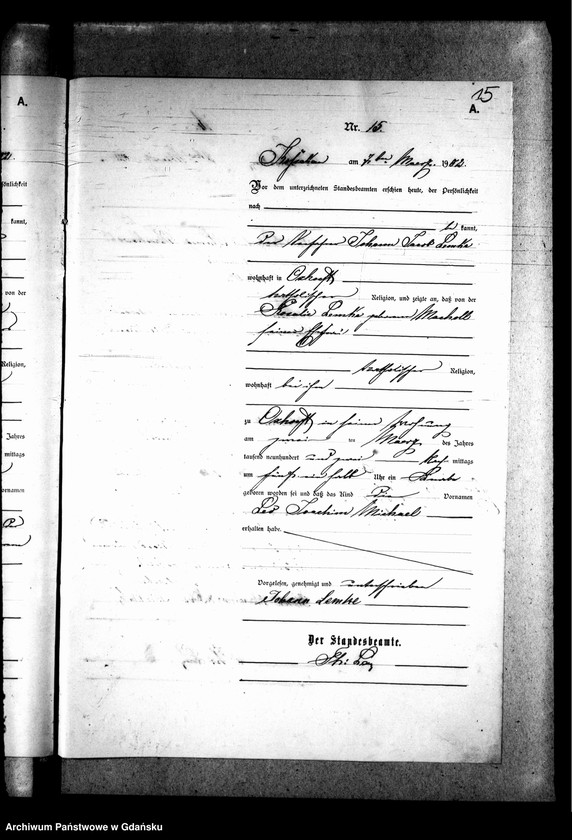 15
A.
Nr. 15.
am 7. ten Maerz 1902.
Vor dem unterzeichneten Standesbeamten erschien heute, der Persönlichkeit
nach
be kannt,
der Johann Jacob Lemke
wohnhaft in Oxhöft
katholischer Religion, und zeigte an, daß von der
Rosalie Lemke geborenen
seiner Ehefrau
katholischer Religion,
wohnhaft bei ihm
zu Oxhöft in seiner Wohnung
am zwei ten Maerz des Jahres
tausend neunhundert und zwei Nach mittags
um fünf ein halb Uhr ein Knabe
geboren worden sei und daß das Kind die Vornamen
Leo Joachim Michael
erhalten habe.
Vorgelesen, genehmigt und unterschrieben
Johann Lemke
Der Standesbeamte.
A.
02.
sönlichkeit
kannt,
von der
Religion,
Jahres
mittags
ornamen
Archiwum Państwowe w Gdańsku